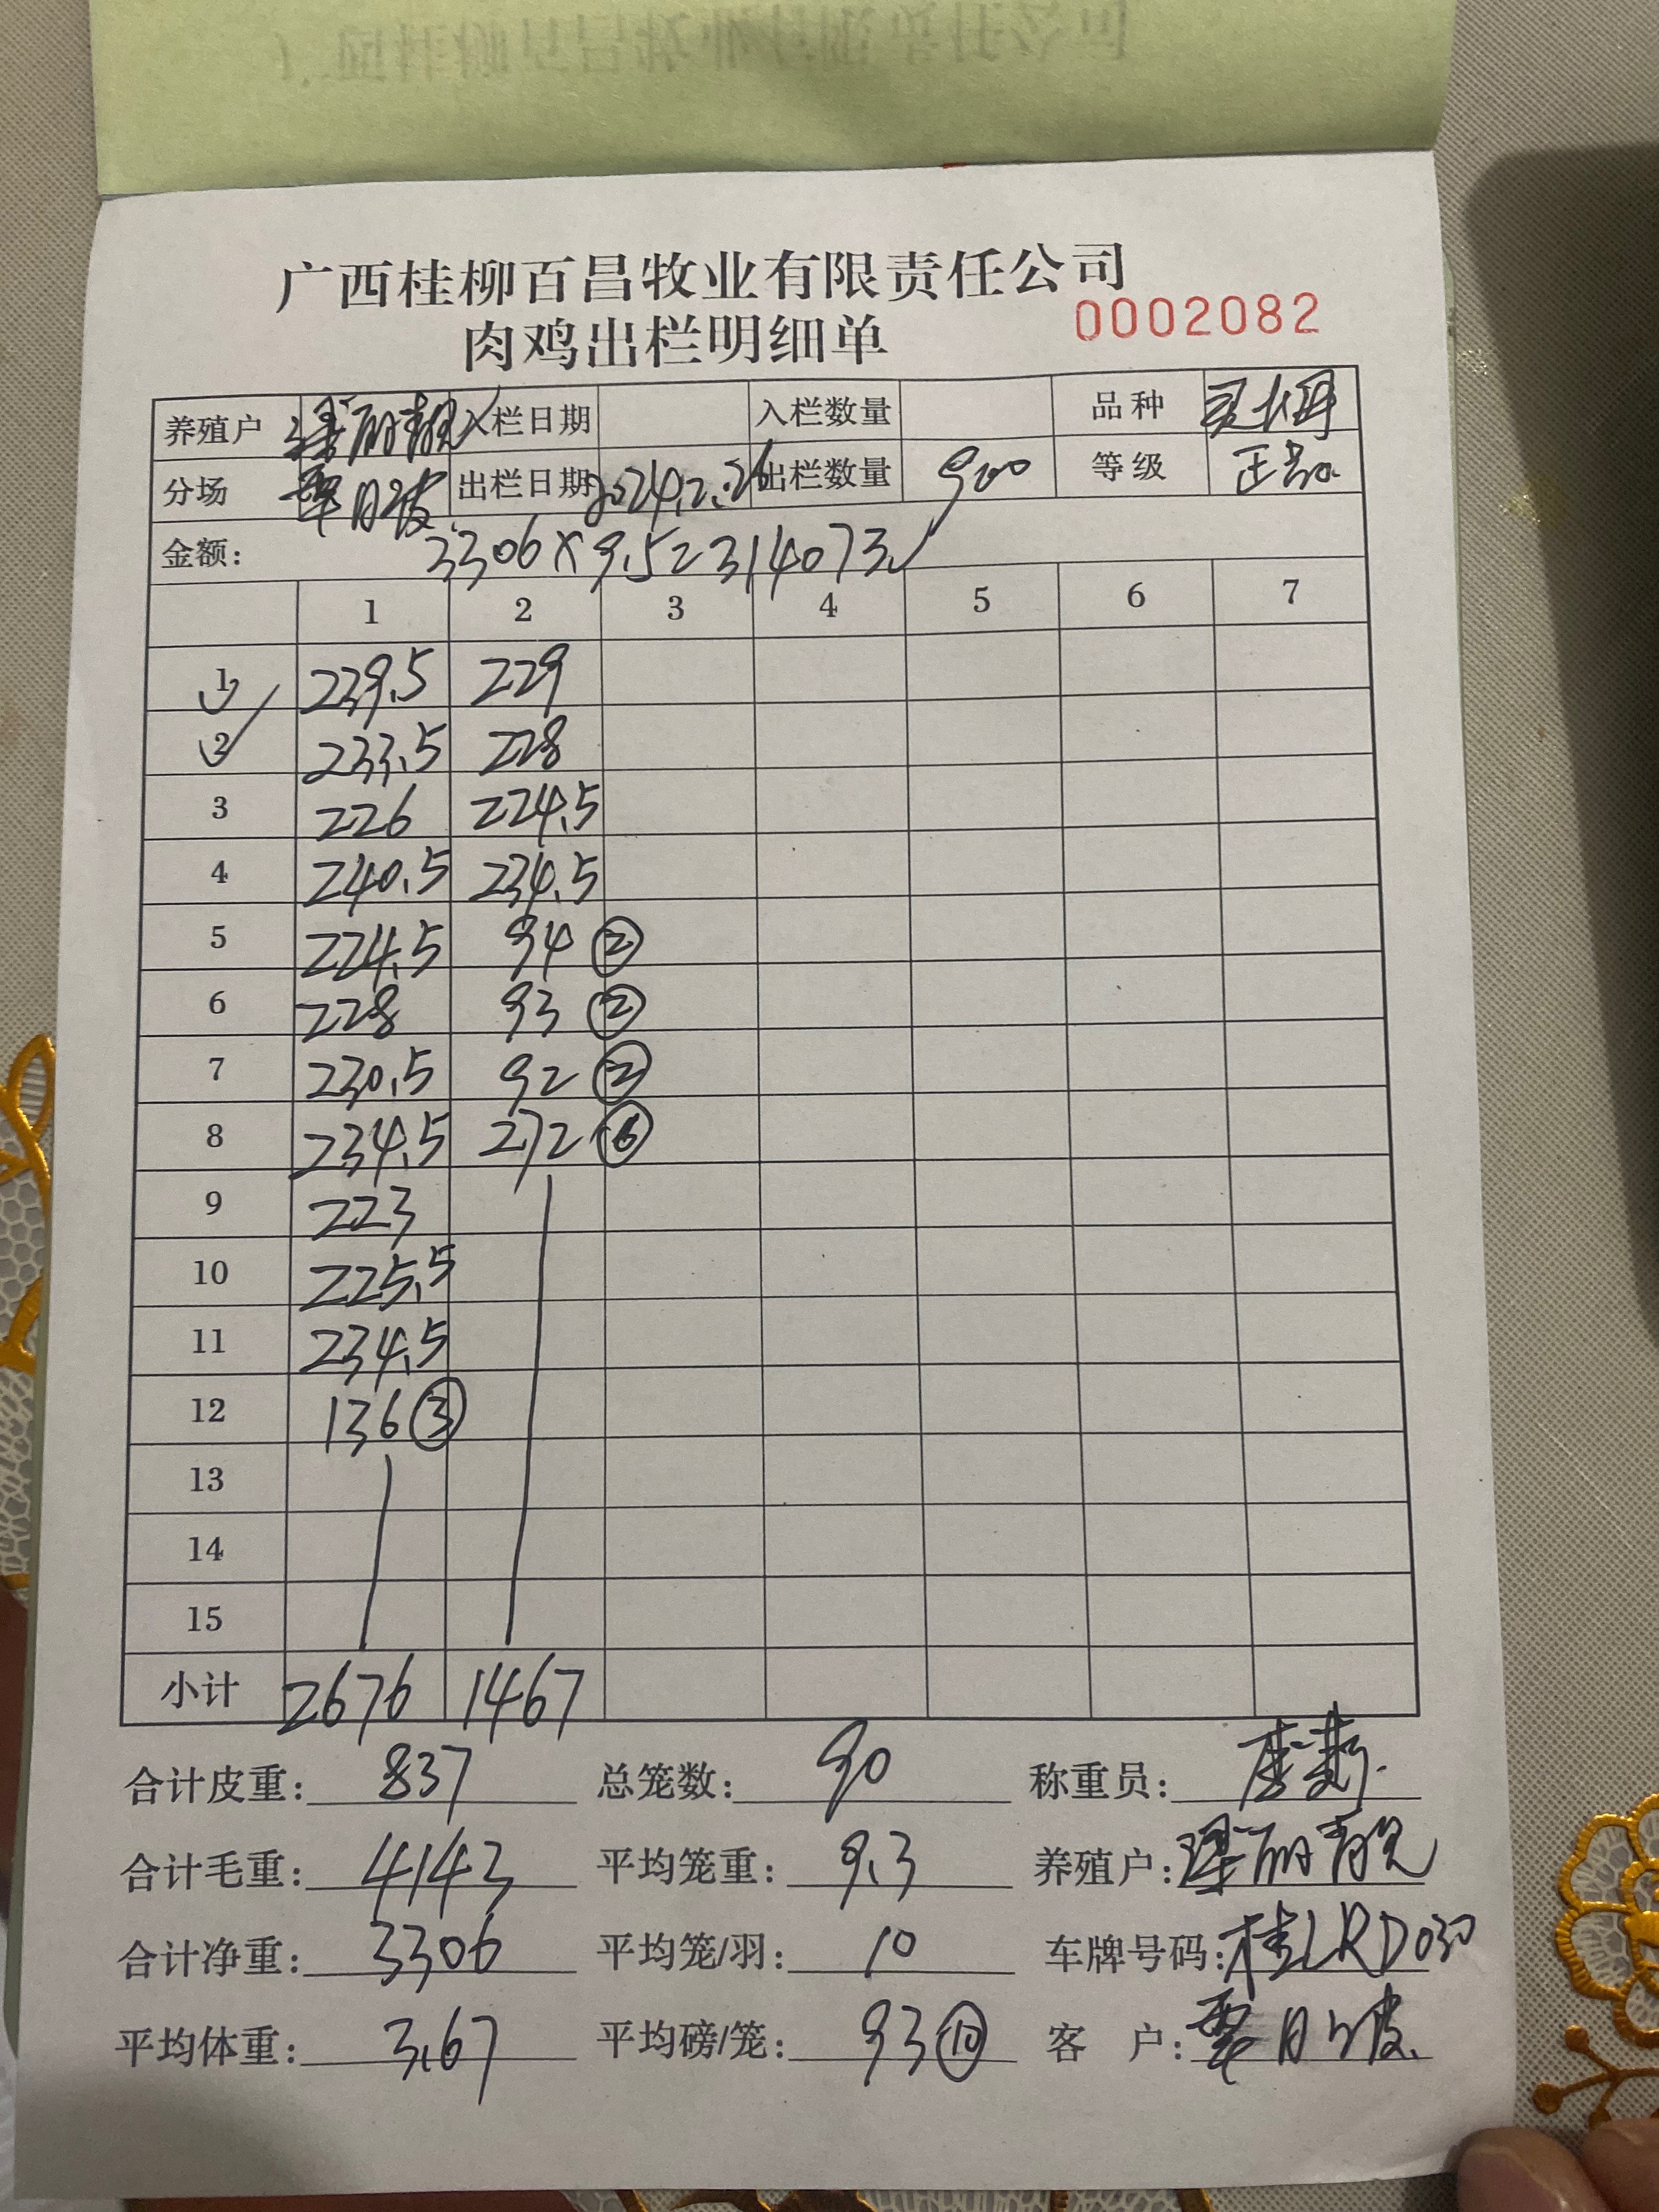 广西桂柳百昌牧业有限责任公司
肉鸡出栏明细单 0002082
养殖户 丽靓 入栏日期 入栏数量 品种
分场 覃月波 出栏日期 2024.2.26 出栏数量 900 等级 正品
金额: 3306×9.5=31407元
1 2 3 4 5 6 7
1 239.5 229
2 233.5 228
3 226 224.5
4 240.5 234.5
5 224.5 94 ②
6 228 93 ②
7 230.5 92 ②
8 234.5 272 ⑥
9 223
10 225.5
11 234.5
12 136 ③
13
14
15
小计 2676 1467
合计皮重: 837 总笼数: 90 称重员:
合计毛重: 4143 平均笼重: 9.3 养殖户: 丽靓
合计净重: 3306 平均笼/羽: 10 车牌号码: 桂LRD030
平均体重: 3.67 平均磅/笼: 93 ⑩ 客 户: 覃月波